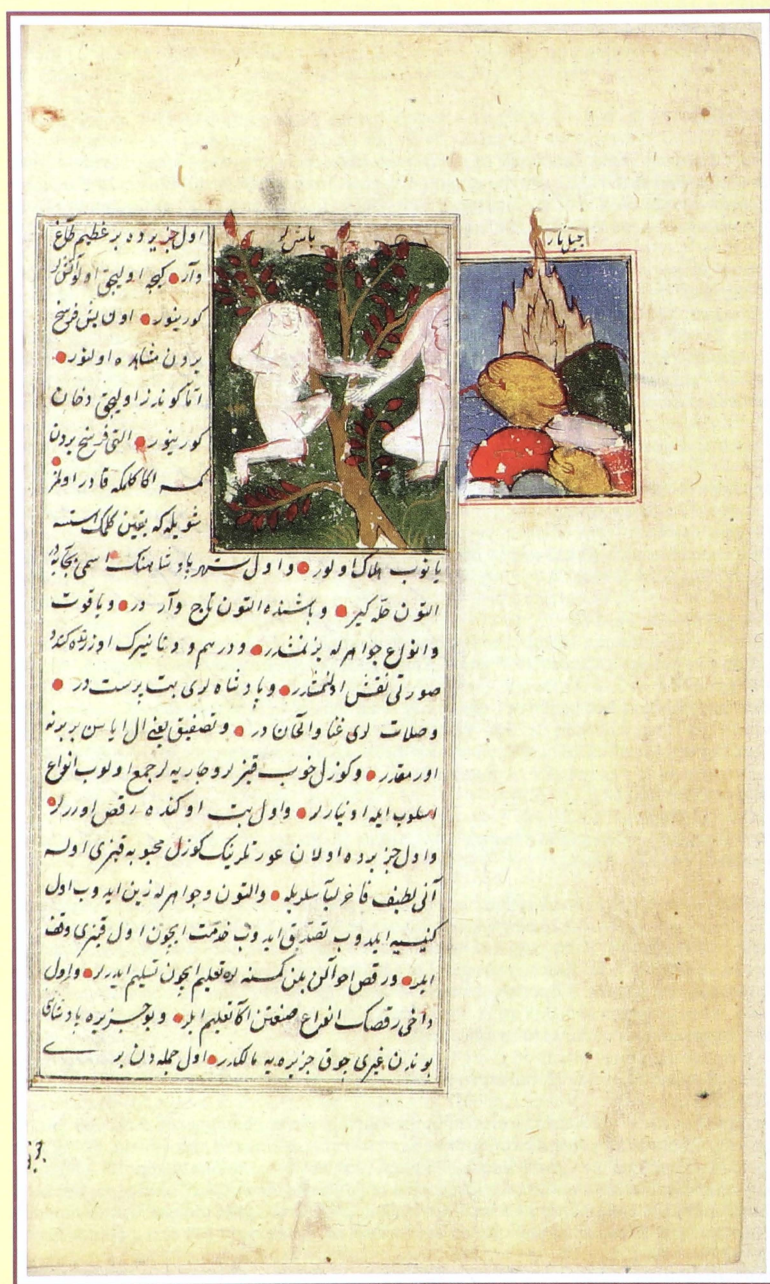 باش لو
جبل نار
اول جزیره ده بر عظیم طاغ
وار کیجه اولیجق اولو آتش لر
کورینور اون بش فرسخ
یردن مشاهده اولنور
اما کوندز اولیجق دخان
کورینور التی فرسخ یردن
کمسه اکا کلمکه قادر اولمز
شویله که یقین کلمک استسه
یانوب هلاک اولور و اول شهر پادشاهنک اسمی
التون حله کیر و باشنده التون تاج وار در و یاقوت
و انواع جواهرله بزنمشدر و درهم و دنانیرک اوزرنده کندو
صورتی نقش اولنمشدر و پادشاه لری بت پرست در
و صلات لری غنا و الحان در و تصفیق یعنی ال ایاسن بربرینه
اورمقدر و کوزل خوب قیزلر و جاریه لر جمع اولوب انواع
اسلوب ایله اوینارلر و اول بت اوکنده رقص اوررلر
و اول جزیرده اولان عورتلرینک کوزل محبوبه قیزی اولسه
آنی لطیف فاخر لباسلریله و التون و جواهرله زین ایدوب اول
کنیسیه ایلدوب تصدیق ایدوب خدمت ایچون اول قیزی وقف
ایلر و رقص احوالن بلن کمسنه لره تعلیم ایچون تسلیم ایدرلر و اول
داخی رقصک انواع صنعتن اکا تعلیم ایلر و بو جزیره پادشاهی
بوندن غیری چوق جزیره یه مالکدر اول جمله دن بری